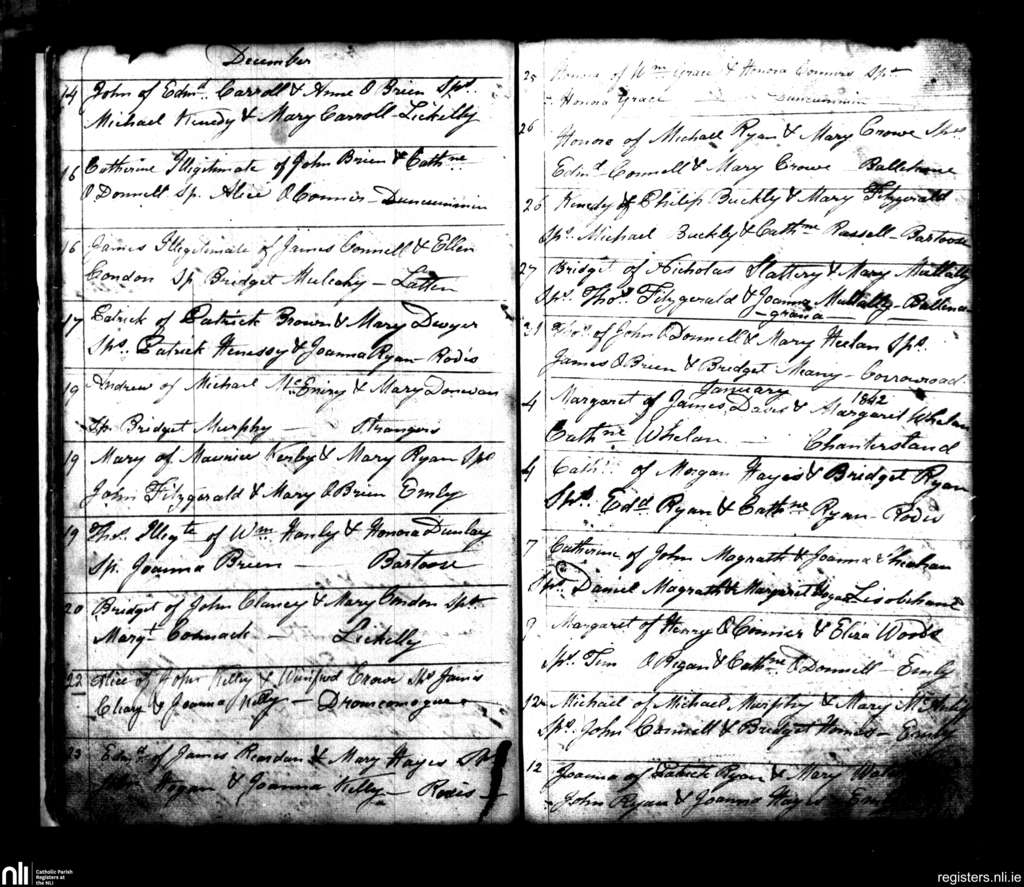 December
14 John of Edmd. Carroll & Anne O Brien Sps.
Michael Kenedy & Mary Carroll - Lickelly
16 Catherine Illigitimate of John Brien & Cathne
O Donnell Sp. Alice O Connor - Duncummin
16 James Illigitimate of James Connell & Ellen
Condon Sp Bridget Mulcahy - Latten
17 Patrick of Patrick Brown & Mary Dwyer
Sps. Patrick Henessy & Joanna Ryan - Rodis
19 Andrew of Michael McEniry & Mary Donevan
Sp Bridget Murphy - Strangers
19 Mary of Maurice Kerby & Mary Ryan Sps
John Fitzgerald & Mary O Brien Emly
19 Thos. Illegte of Wm Hanly & Honora Dunlay
Sp. Joanna Brien - Bartoose
20 Bridget of John Clancy & Mary Condon Sps.
Margt Cormack - Lickelly
22 Alice of John Kelly & Winifred Crowe Sps James
Cleary & Joanna Kelly - Dromcomogue
23 Edmd of James Reardan & Mary Hayes Sps
Hogan & Joanna Kelly - Rodis
25 Honora of Wm Grace & Honora Connors Sps
Honora Grace - Duncummin
26 Honora of Michael Ryan & Mary Crowe Sps
Edmd Connell & Mary Crowe Ballehone
26 Kenedy of Philip Buckly & Mary Fitzgerald
Sps. Michael Buckly & Cathne Russell - Bartoose
27 Bridget of Nicholas Slattery & Mary Mullally
Sps. Thos. Fitzgerald & Joanna Mullally - Ballina-
-grana
31 Thos. of John O Donnell & Mary Heelan Sps.
James O Brien & Bridget Meany - Corrowroad
January 1842
4 Margaret of James Davis & Margaret Whelan
Cathne Whelan - Chanterstand
4 Cathne of Morgan Hayes & Bridget Ryan
Sps. Edd Ryan & Cathne Ryan - Rodis
7 Catherine of John Magrath & Joanna
Sps. Daniel Magrath & Margaret Hogan Lisobehane
9 Margaret of Henry O Connor & Eliza Woods
Sps. Tim O Regan & Cathne O Donnell - Emly
12 Michael of Michael Murphy & Mary
Sps. John Connell & Bridget - Emly
12 Joanna of Patrick Ryan & Mary
John Ryan & Joanna Hayes - Emly
nli Catholic Parish
Registers at
the NLI
registers.nli.ie